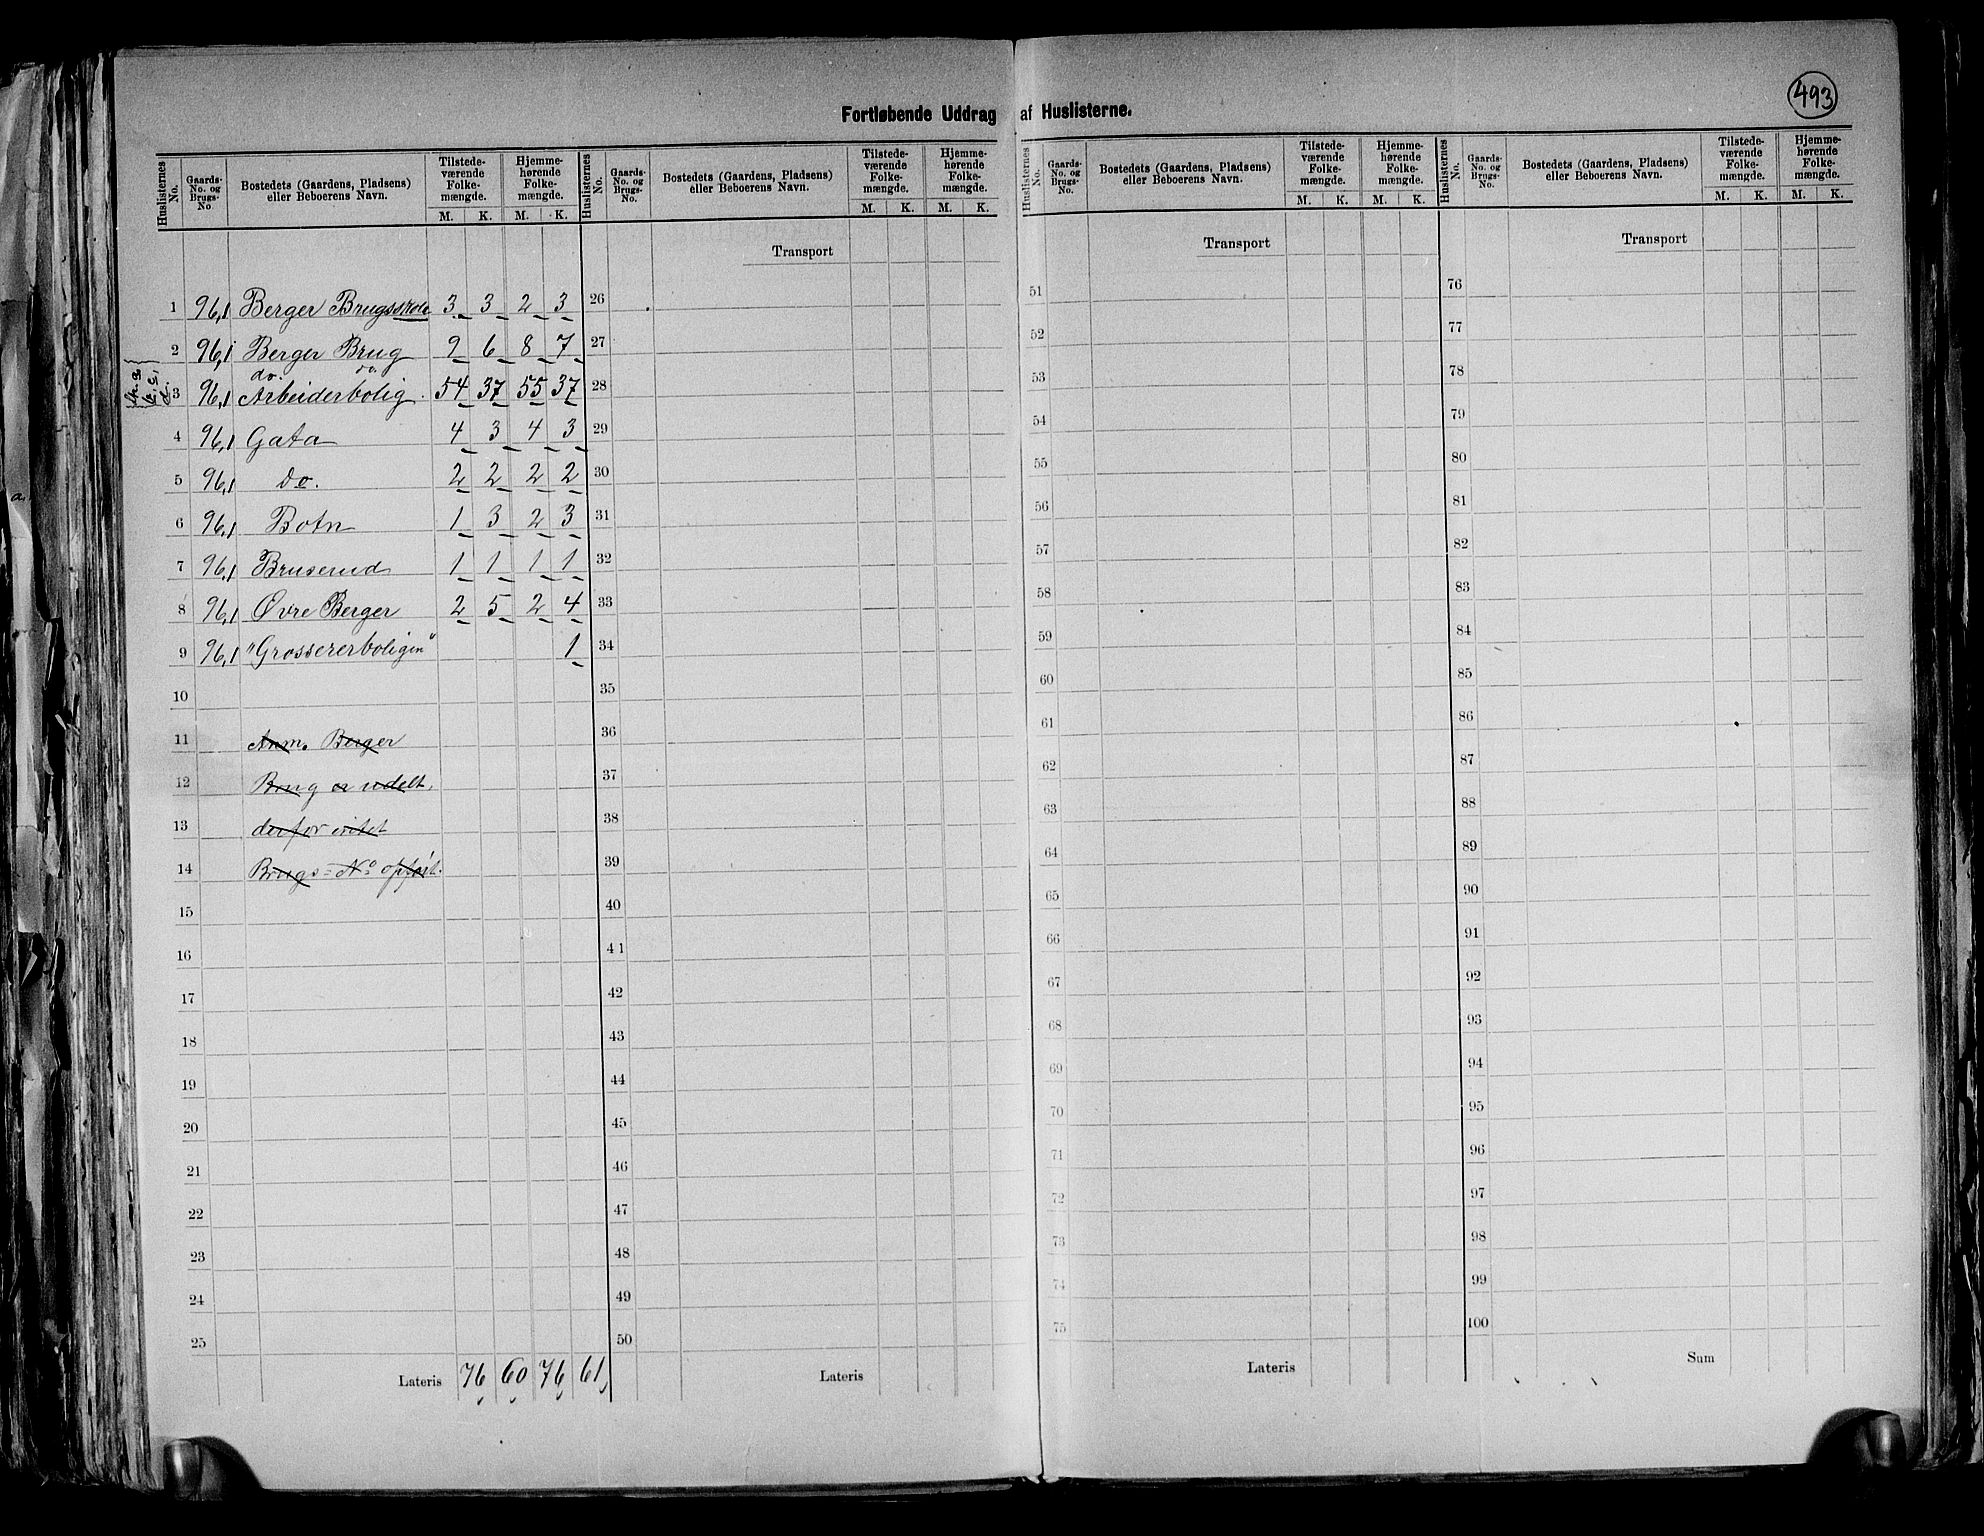 493
Fortløbende Uddrag af Huslisterne.
Huslisternes No. Gaards-No. og Brugs-No. Bostedets (Gaardens, Pladsens) eller Beboerens Navn. Tilstede-værende Folke-mængde. Hjemme-hørende Folke-mængde.
M. K. M. K.
Huslisternes No. Gaards-No. og Brugs-No. Bostedets (Gaardens, Pladsens) eller Beboerens Navn. Tilstede-værende Folke-mængde. Hjemme-hørende Folke-mængde.
M. K. M. K.
Huslisternes No. Gaards-No. og Brugs-No. Bostedets (Gaardens, Pladsens) eller Beboerens Navn. Tilstede-værende Folke-mængde. Hjemme-hørende Folke-mængde.
M. K. M. K.
Huslisternes No. Gaards-No. og Brugs-No. Bostedets (Gaardens, Pladsens) eller Beboerens Navn. Tilstede-værende Folke-mængde. Hjemme-hørende Folke-mængde.
M. K. M. K.
1 96,1 Berger Brugsskole 3 3 2 3
2 96,1 Berger Brug 9 6 8 7
do. do.
3 96,1 Arbeiderbolig. 54 37 55 37
4 96,1 Gata 4 3 4 3
5 96,1 do. 2 2 2 2
6 96,1 Botn 1 3 2 3
7 96,1 Bruserud 1 1 1 1
8 96,1 Øvre Berger 2 5 2 4
9 96,1 "Grossererboligen" 1
10
11 Anm. Berger
12 Brug er udelt,
13 derfor intet
14 Brugs=No opført.
15
16
17
18
19
20
21
22
23
24
25
Lateris 76 60 76 61
Transport
26
27
28
29
30
31
32
33
34
35
36
37
38
39
40
41
42
43
44
45
46
47
48
49
50
Lateris
Transport
51
52
53
54
55
56
57
58
59
60
61
62
63
64
65
66
67
68
69
70
71
72
73
74
75
Lateris
Transport
76
77
78
79
80
81
82
83
84
85
86
87
88
89
90
91
92
93
94
95
96
97
98
99
100
Sum